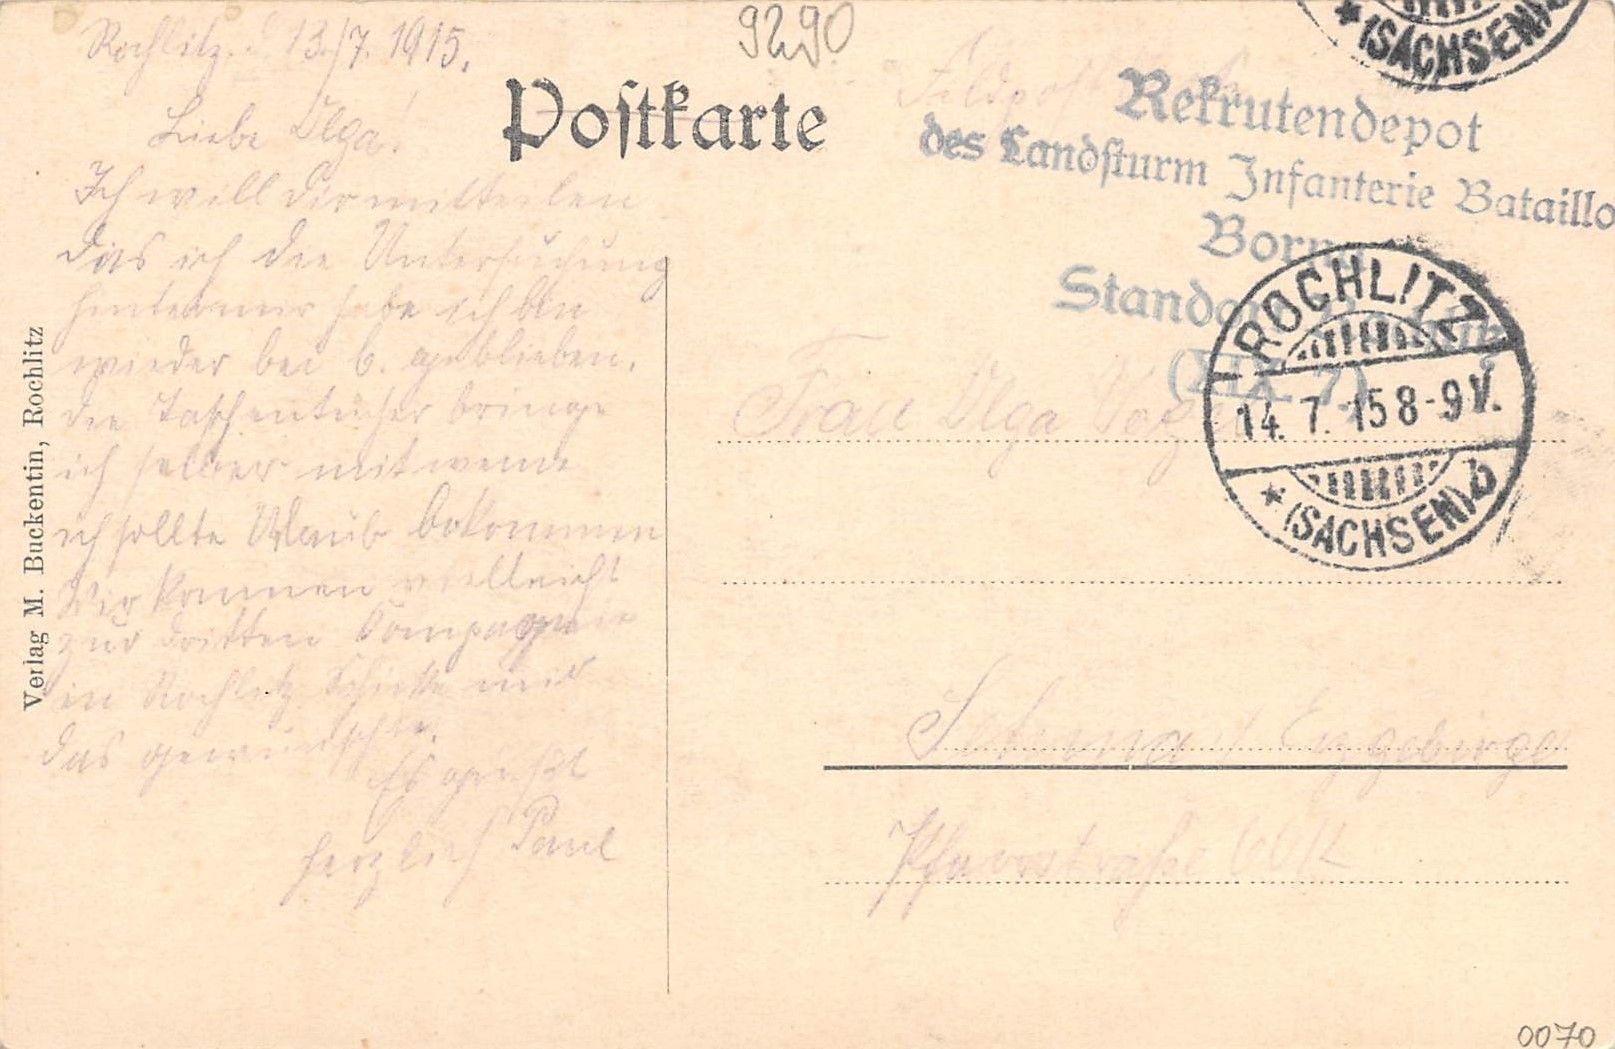 Rochlitz. d. 13./7. 1915.
Liebe Olga!
Ich will dir mitteilen
das ich die Untersuchung
hintermir habe ich bin
wieder bei 6. geblieben.
die Taschentücher bringe
ich selber mit wenn
ich sollte Urlaub bekommen
Wir kommen vielleicht
zur dritten Compagnie
in Rochlitz Schicke mir
das gewünschte.
Es grüßt
herzlich Paul
Verlag M. Buckentin, Rochlitz
9290
Postkarte
Feldpost
Rekrutendepot
des Landsturm Infanterie Bataillo
Borna
Standort Rochlitz
(XIX. 7.)
* (SACHSEN)
ROCHLITZ
14. 7. 15 8-9 V.
* (SACHSEN) b
Frau Olga
Erzgebirge
Pfarrstraße
0070